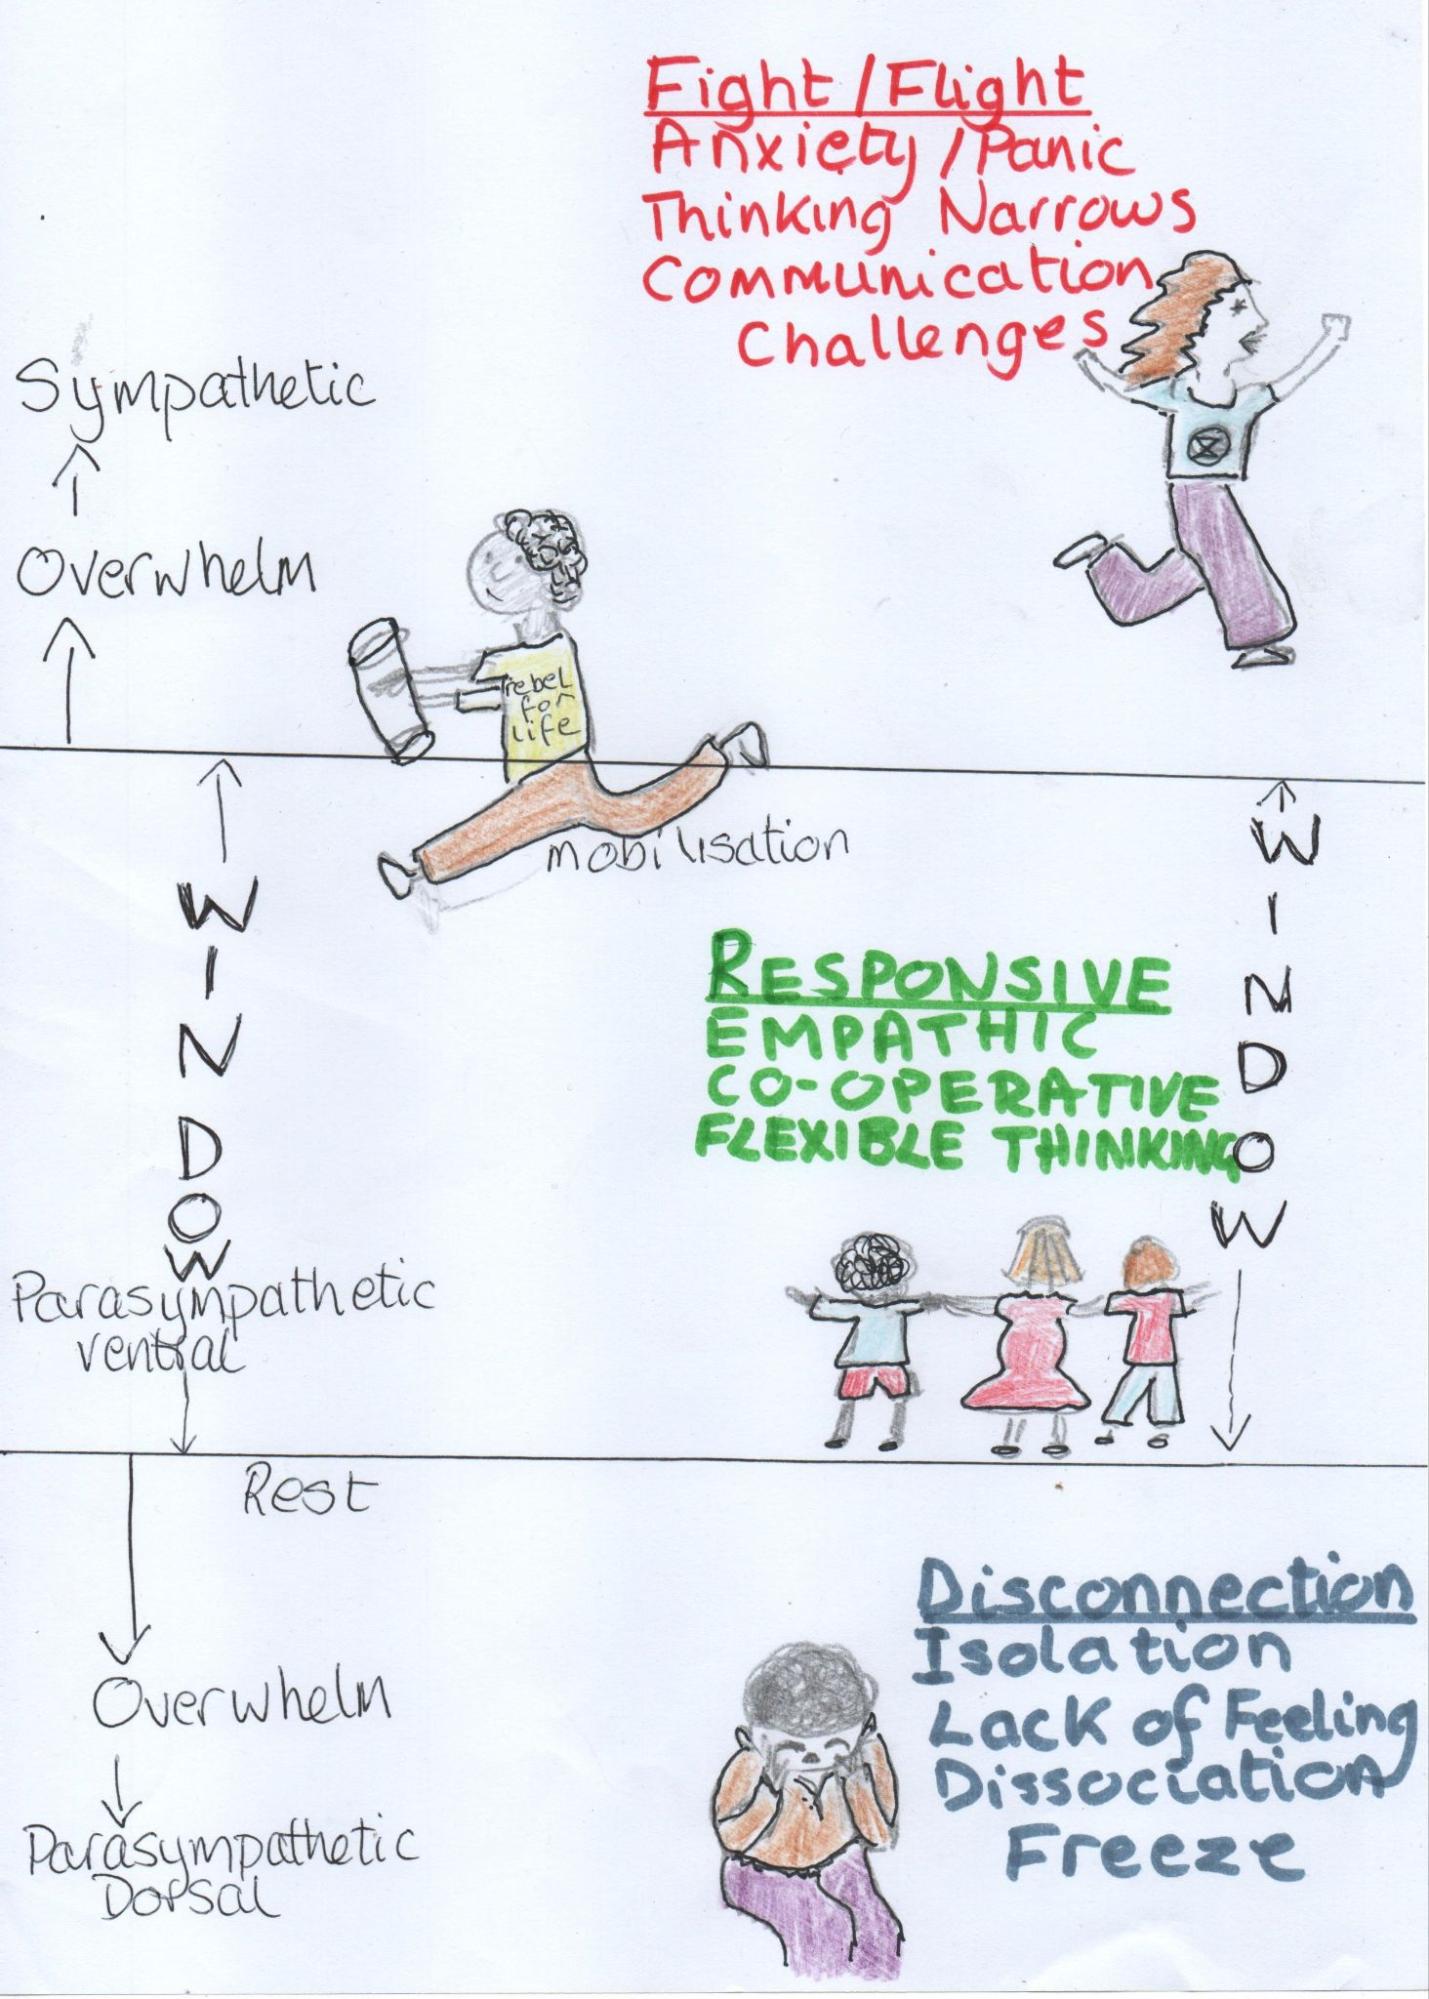 Fight / Flight
Anxiety / Panic
Thinking Narrows
Communication
Challenges
Sympathetic
Overwhelm
rebel
for
life
mobilisation
WINDOW
WINDOW
RESPONSIVE
EMPATHIC
CO-OPERATIVE
FLEXIBLE THINKING
Parasympathetic
ventral
Rest
Disconnection
Isolation
Lack of Feeling
Dissociation
Freeze
Overwhelm
Parasympathetic
Dorsal